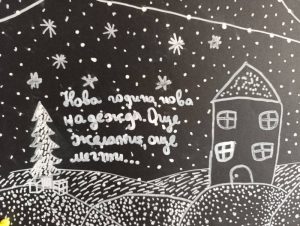 Нова година, нова
надежда. Още
желания, още
мечти...